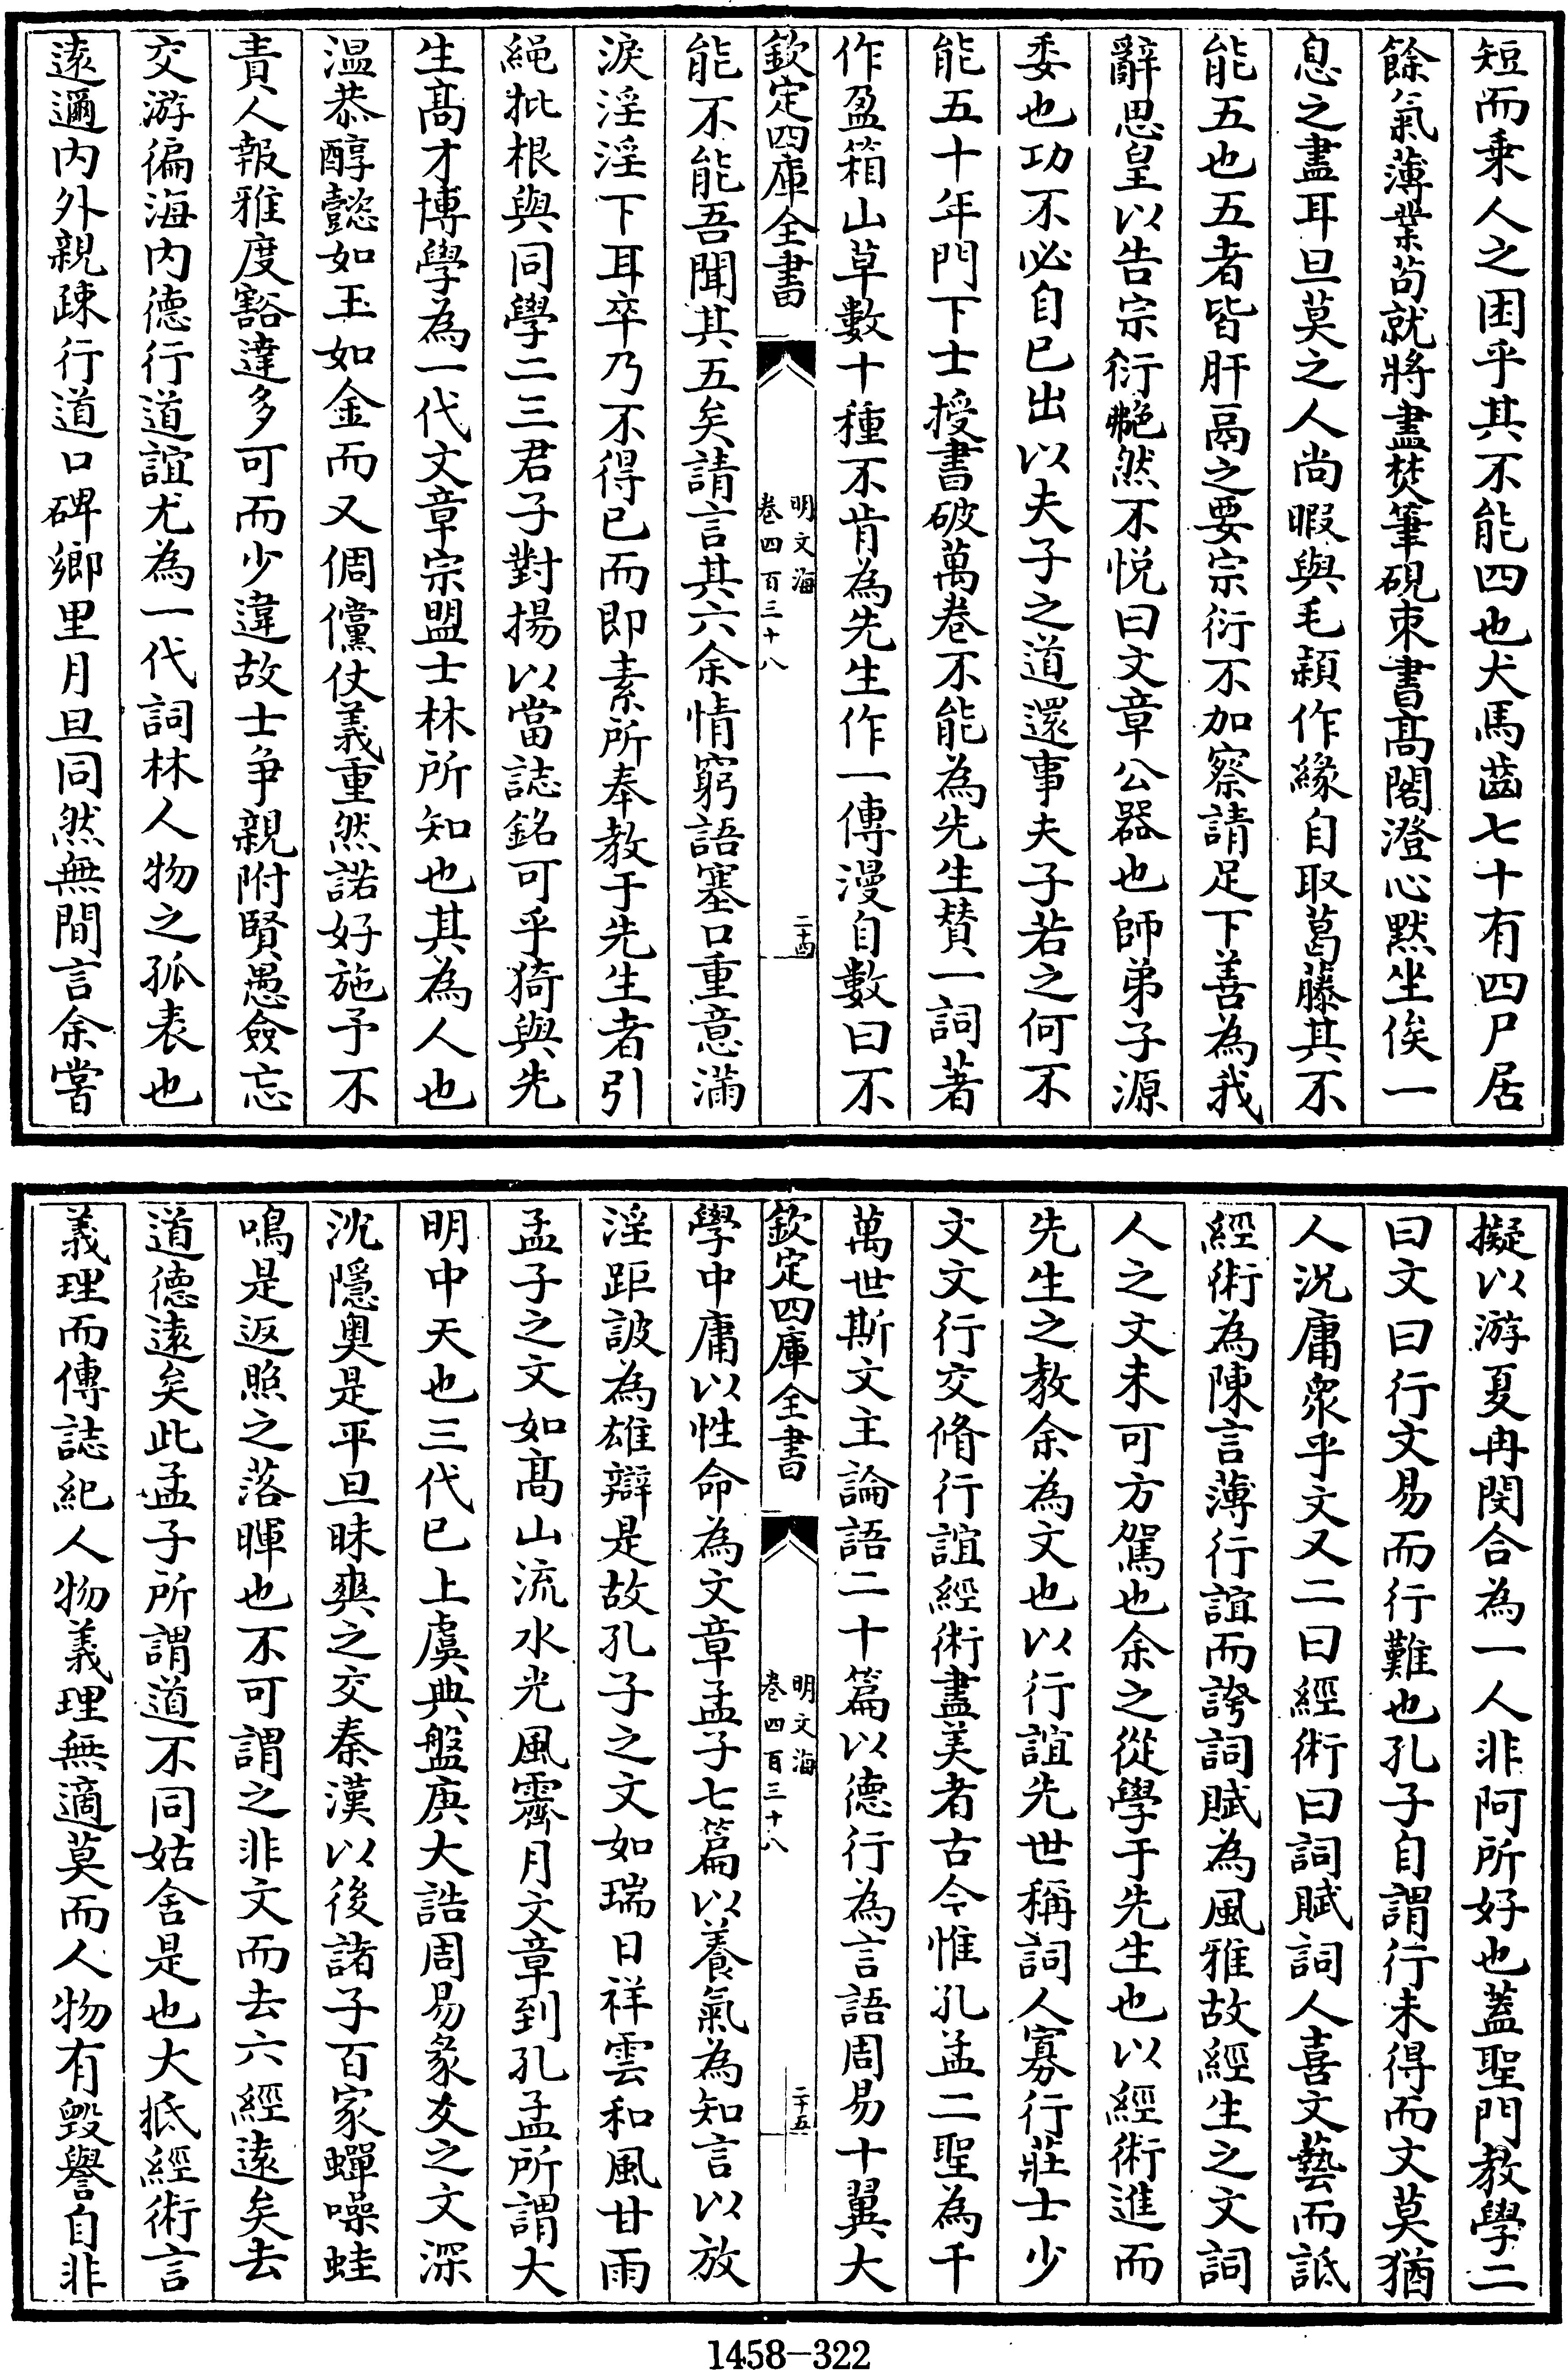 短而乗人之困乎其不能四也犬馬齒七十有四尸居
餘氣薄業苟就將盡焚筆硯束書髙閣澄心黙坐俟一
息之盡耳旦莫之人尚暇與毛頴作緣自取葛藤其不
能五也五者皆肝鬲之要宗衍不加察請足下善為我
辭思皇以告宗衍艴然不悦曰文章公器也師弟子源
委也功不必自已出以夫子之道還事夫子若之何不
能五十年門下士授書破萬卷不能為先生賛一詞著
作盈箱山草數十種不肯為先生作一傳漫自數曰不
欽定四庫全書
明文海
卷四百三十八
二十四
能不能吾聞其五矣請言其六余情窮語塞口重意滿
淚淫淫下耳卒乃不得已而即素所奉教于先生者引
繩批根與同學二三君子對揚以當誌銘可乎猗與先
生髙才博學為一代文章宗盟士林所知也其為人也
温恭醇懿如玉如金而又倜儻仗義重然諾好施予不
責人報雅度豁達多可而少違故士争親附賢愚僉忘
交游徧海内德行道誼尤為一代詞林人物之孤表也
逺邇内外親疎行道口碑鄉里月旦同然無間言余嘗
擬以游夏冉閔合為一人非阿所好也蓋聖門教學二
曰文曰行文易而行難也孔子自謂行未得而文莫猶
人況庸衆乎文又二曰經術曰詞賦詞人喜文藝而詆
經術為陳言薄行誼而誇詞賦為風雅故經生之文詞
人之文未可方駕也余之從學于先生也以經術進而
先生之教余為文也以行誼先世稱詞人寡行莊士少
文文行交脩行誼經術盡美者古今惟孔孟二聖為千
萬世斯文主論語二十篇以德行為言語周易十翼大
欽定四庫全書
明文海
卷四百三十八
二十五
學中庸以性命為文章孟子七篇以養氣為知言以放
淫距詖為雄辯是故孔子之文如瑞日祥雲和風甘雨
孟子之文如髙山流水光風霽月文章到孔孟所謂大
明中天也三代已上虞典盤庚大誥周易彖爻之文深
沈隱奥是平旦昧爽之交秦漢以後諸子百家蟬噪蛙
鳴是返照之落暉也不可謂之非文而去六經逺矣去
道德逺矣此孟子所謂道不同姑舍是也大抵經術言
義理而傳誌紀人物義理無適莫而人物有毁譽自非
1458-322